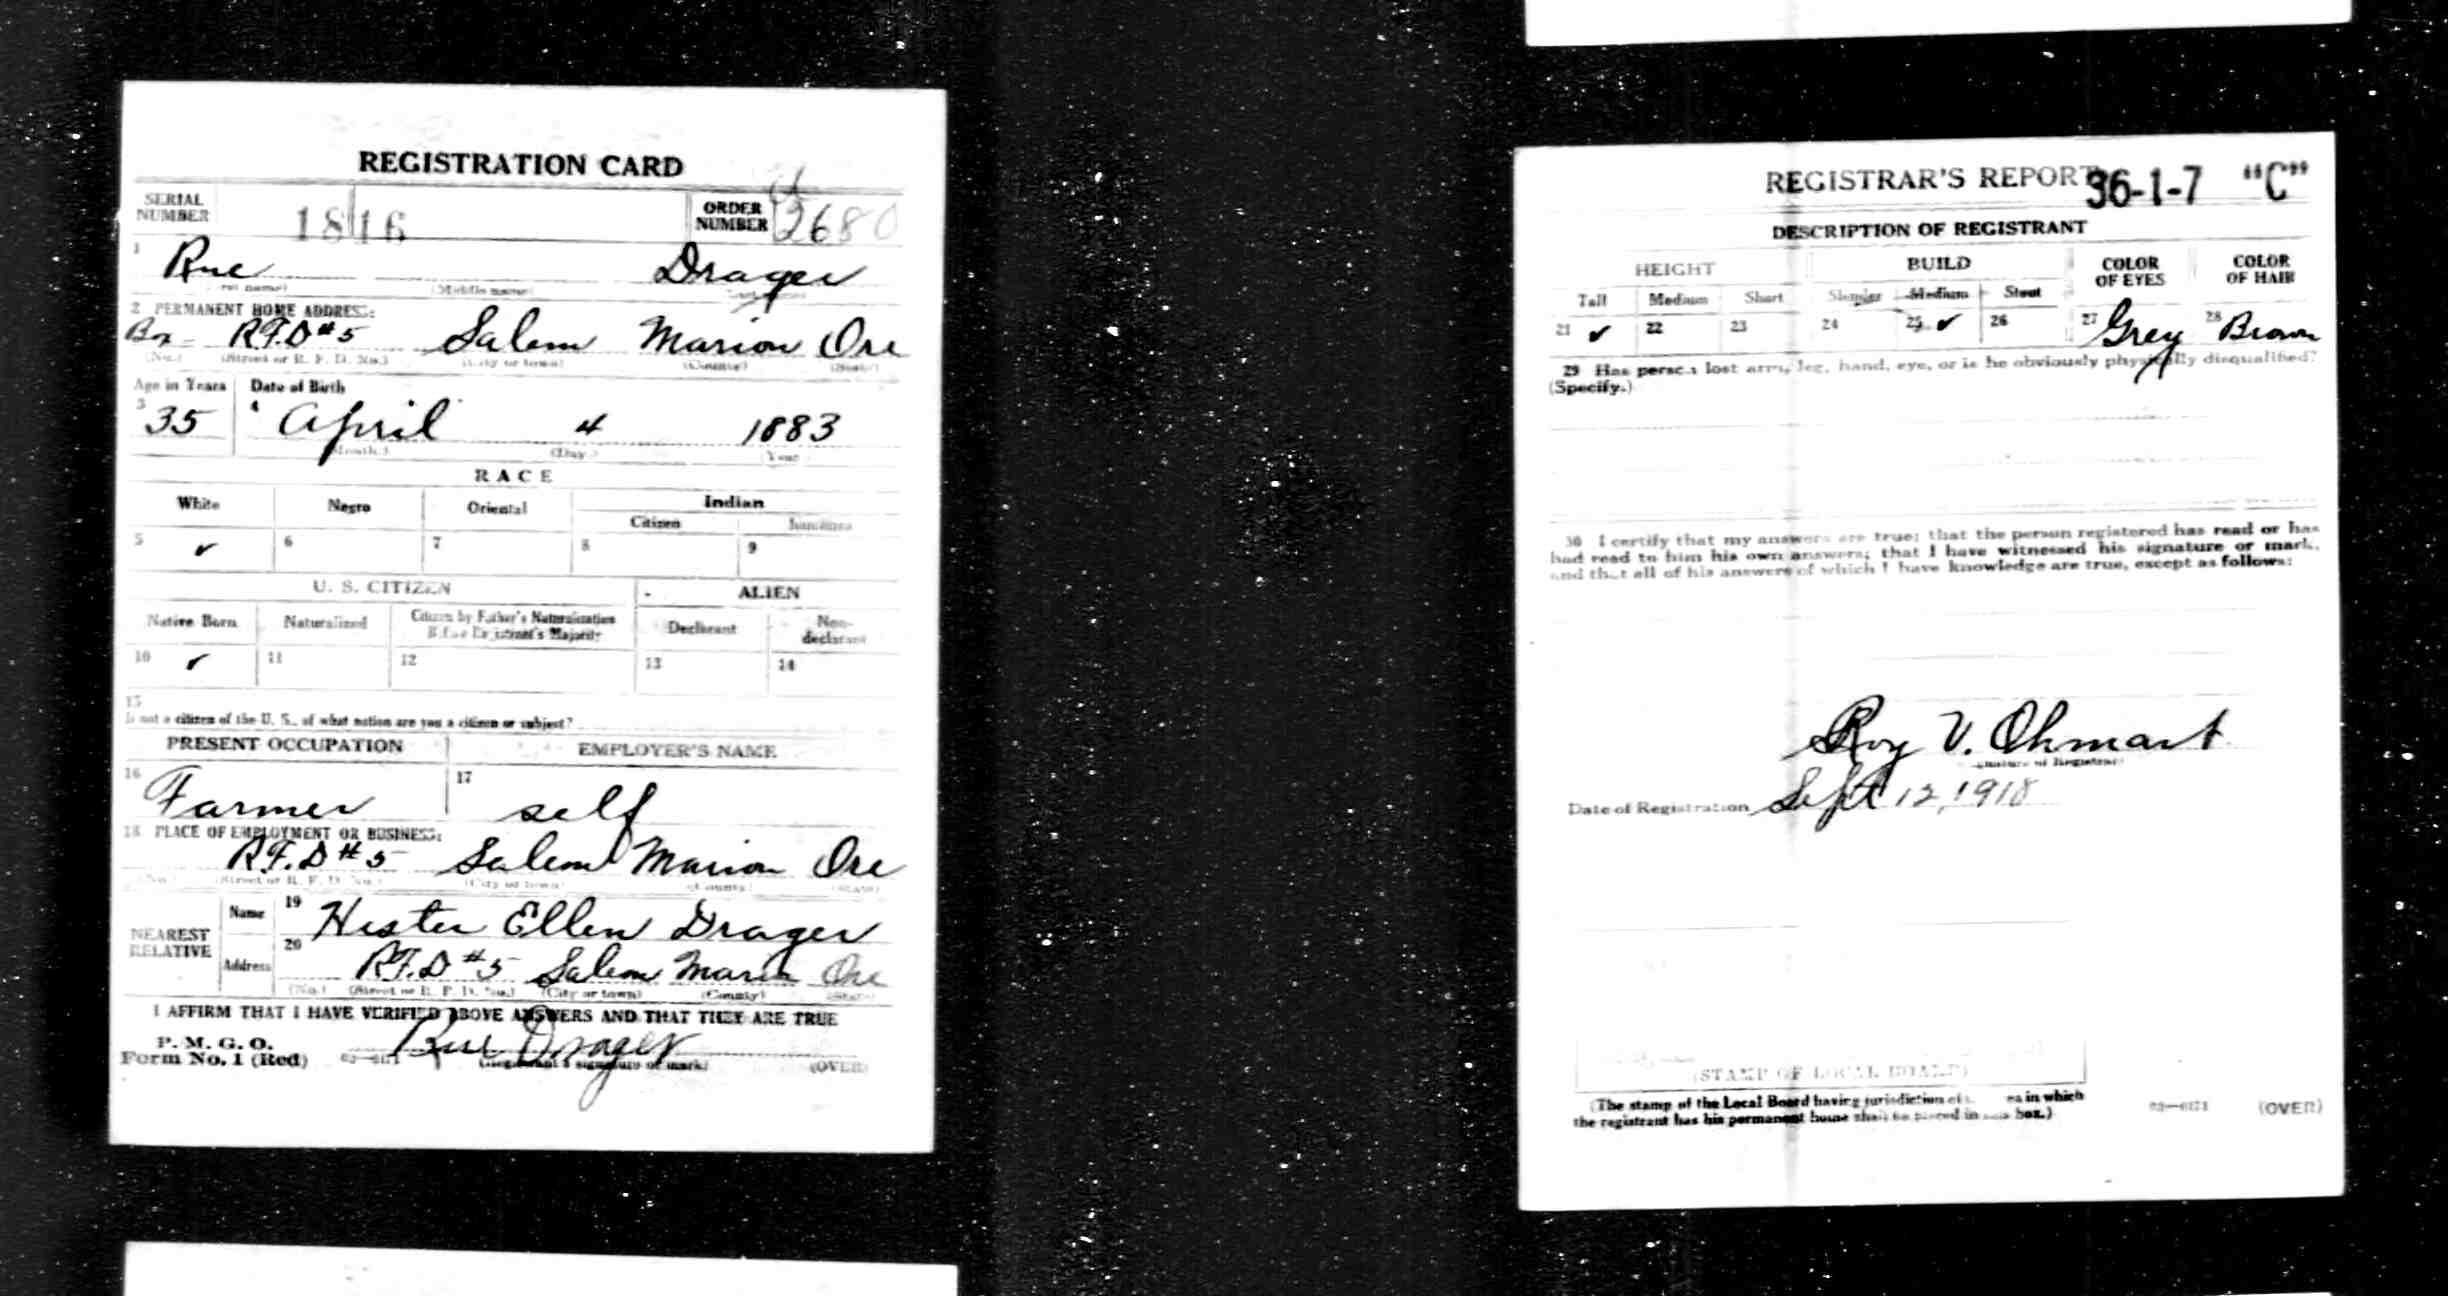 REGISTRATION CARD
SERIAL NUMBER 1816 ORDER NUMBER 2680
1 Rue Drager
(Middle name)
2 PERMANENT HOME ADDRESS:
Box R.F.D #5 Salem Marion Ore
(No.) (Street or R. F. D. No.) (City or town) (County) (State)
Age in Years Date of Birth
3 35 4 April 4 1883
(Month.) (Day.) (Year
RACE
White Negro Oriental Indian
Citizen
5 ✓ 6 7 8 9
U. S. CITIZEN ALIEN
Native Born Naturalized Citizen by Father's Naturalization Before Registrant's Majority Declarant Non-declarant
10 ✓ 11 12 13 14
15
If not a citizen of the U. S., of what nation are you a citizen or subject?
PRESENT OCCUPATION EMPLOYER'S NAME
16 Farmer 17 self
18 PLACE OF EMPLOYMENT OR BUSINESS:
R.F.D #5 Salem Marion Ore
(No.) (Street or R. F. D. No.) (City or town) (County) (State)
NEAREST RELATIVE Name 19 Hester Ellen Drager
Address 20 R.F.D #5 Salem Marion Ore
(No.) (Street or R. F. D. No.) (City or town) (County) (State)
I AFFIRM THAT I HAVE VERIFIED ABOVE ANSWERS AND THAT THEY ARE TRUE
P. M. G. O.
Form No. 1 (Red) Rue Drager
(Registrant's signature or mark) (OVER)
REGISTRAR'S REPORT 36-1-7 "C"
DESCRIPTION OF REGISTRANT
HEIGHT BUILD COLOR OF EYES COLOR OF HAIR
Tall Medium Short Slender Medium Stout
21 ✓ 22 23 24 25 ✓ 26 27 Grey 28 Brown
29 Has person lost arm, leg, hand, eye, or is he obviously physically disqualified?
(Specify.)
30 I certify that my answers are true; that the person registered has read or has
had read to him his own answers; that I have witnessed his signature or mark,
and that all of his answers of which I have knowledge are true, except as follows:
Roy V. Ohmart
(Signature of Registrar)
Date of Registration Sept 12, 1918
(STAMP OF LOCAL BOARD)
(The stamp of the Local Board having jurisdiction of area in which
the registrant has his permanent home shall be placed in this box.)
03—6171 (OVER)